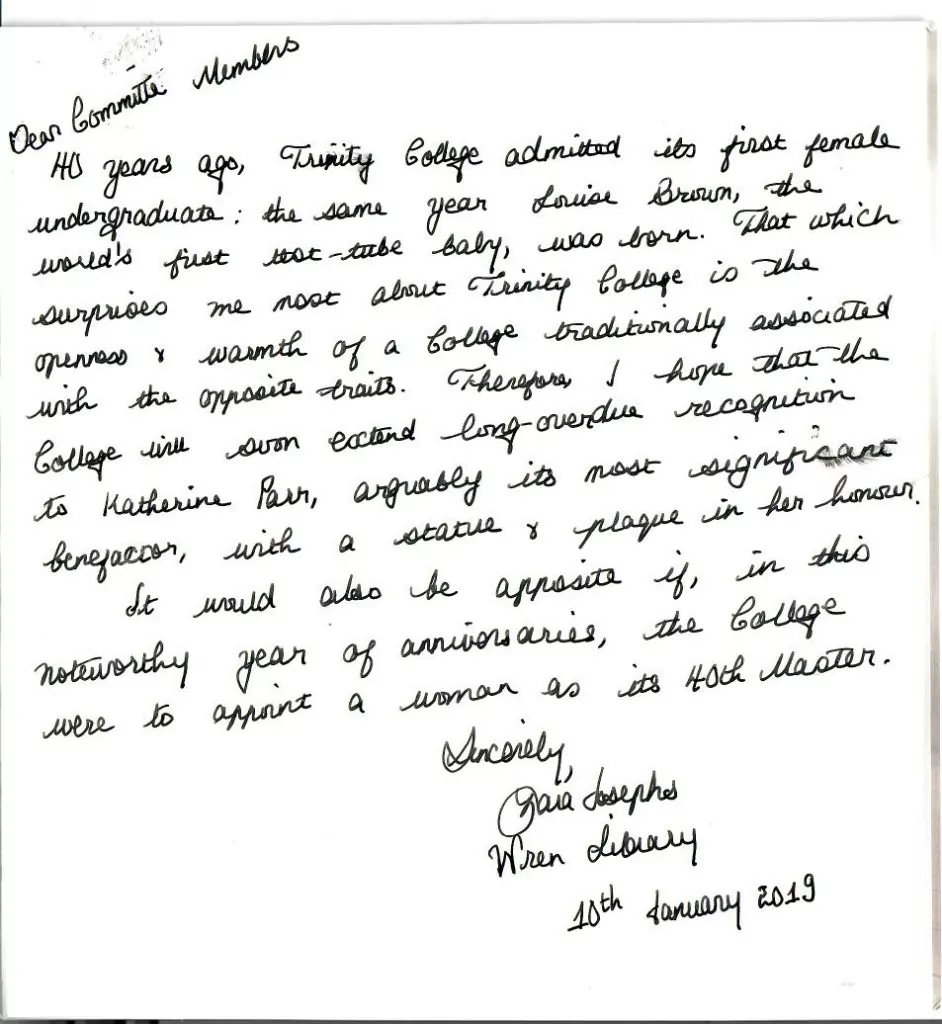 Dear Committe Members
40 years ago, Trinity College admitted its first female
undergraduate: the same year Louise Brown, the
world's first test-tube baby, was born. That which
surprises me most about Trinity College is the
openness & warmth of a College traditionally associated
with the opposite traits. Therefore, I hope that the
College will soon extend long-overdue recognition
to Katherine Parr, arguably its most significant
benefactor, with a statue & plaque in her honour.
It would also be apposite if, in this
noteworthy year of anniversaries, the College
were to appoint a woman as its 40th Master.
Sincerely,
Zara Josephs
Wren Library
10th January 2019